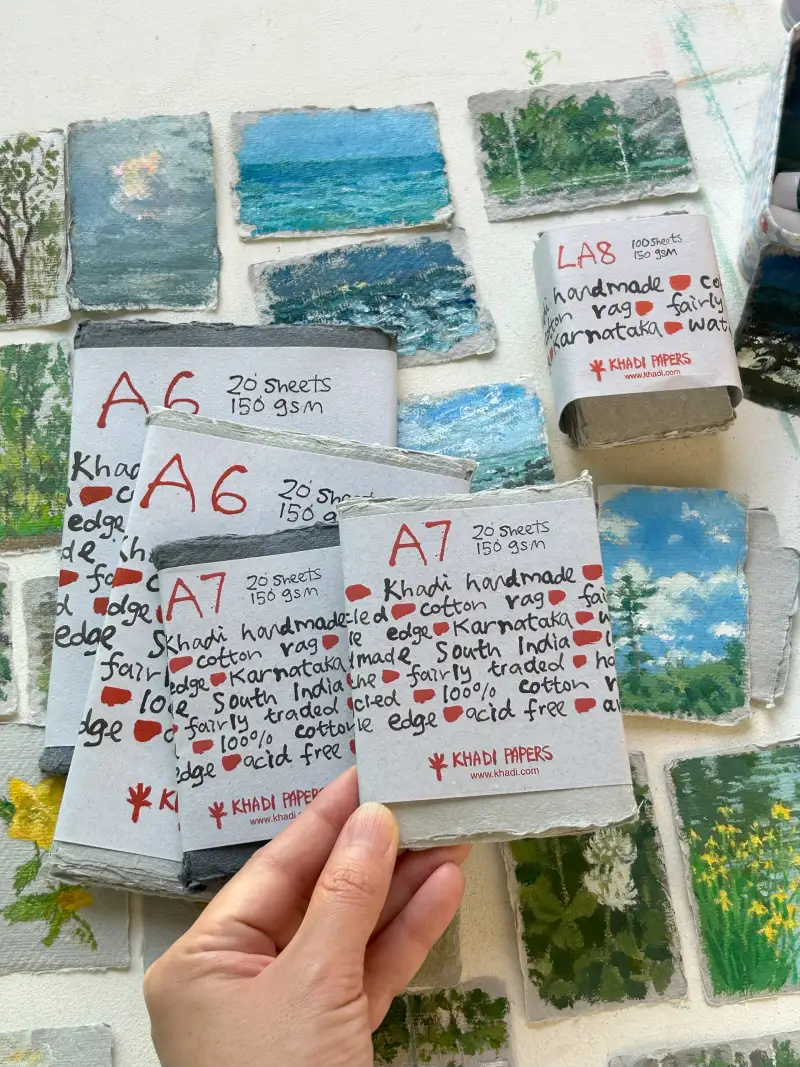 LA8 100 sheets
150 gsm
handmade
cotton rag fairly
Karnataka
KHADI PAPERS
www.khadi.com
A6 20 sheets
150 gsm
edge
edge
A6 20
150
A7 20 sheets
150 gsm
Khadi handmade
cotton rag
edge Karnataka
South India
fairly traded
100% cotton
edge acid free
KHADI PAPERS
A7 20 sheets
150 gsm
Khadi handmade
cotton rag
edge Karnataka
made South India
fairly traded
100% cotton
edge acid free
KHADI PAPERS
www.khadi.com